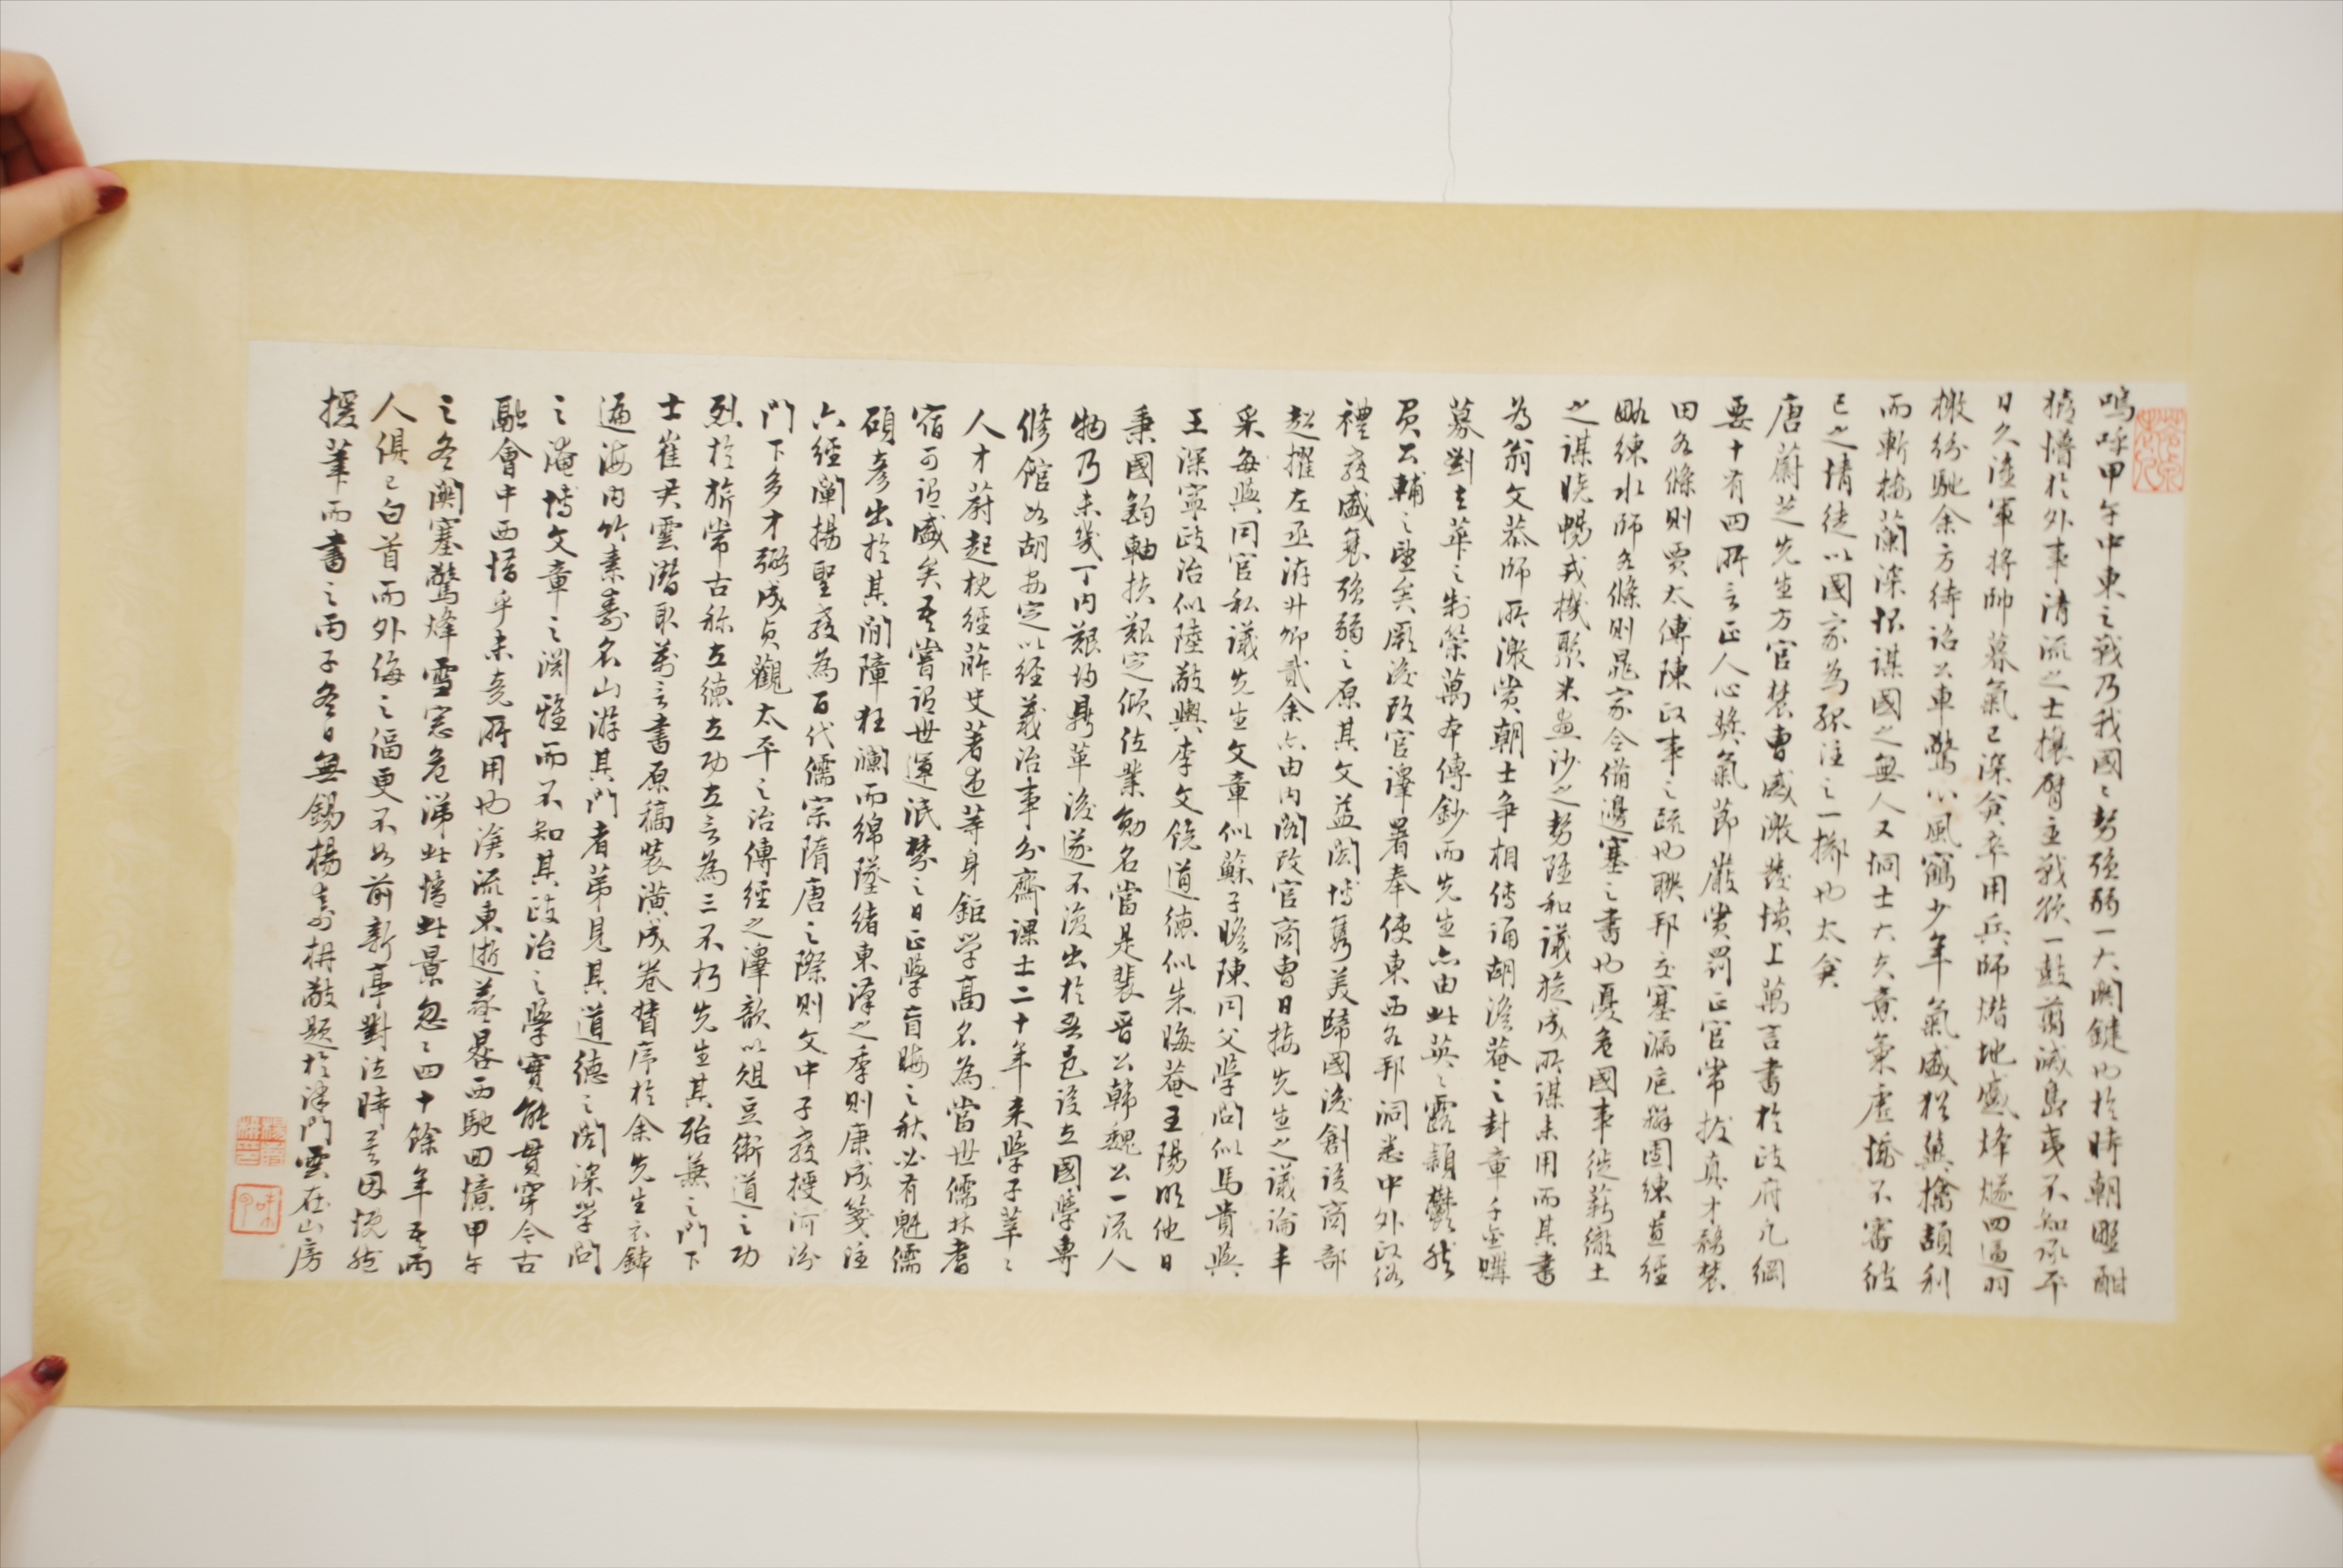 嗚呼甲午中東之戰乃我國之勢強弱一大關鍵也於時朝野酣
嬉懵於外事清流之士攘臂主戰欲一鼓翦滅島夷不知承平
日久陸軍將帥暮氣已深倉卒用兵師熸地蹙烽燧四逼羽
檄紛馳余方待詔公車驚心風鶴少年氣盛猶冀擒頡利
而斬樓蘭深恨謀國之無人又恫士大夫意氣虛憍不審彼
己之情徒以國家為孤注之一擲也太倉
唐蔚芝先生方官農曹感激發憤上萬言書於政府凡綱
要十有四所言正人心獎氣節嚴賞罰正官常拔真才務農
田各條則賈太傅陳政事之疏也聯邦交塞漏巵辦團練置經
略練水師各條則鼂家令備邊塞之書也憂危國事徙薪徹土
之謀曉暢戎機聚米畫沙之勢雖和議旋成所謀未用而其書
為翁文恭師所激賞朝士爭相傳誦胡澹菴之封章千金購
募劉去華之制策萬本傳鈔而先生亦由此英英露穎鬱然
負公輔之望矣厥後改官譯署奉使東西各邦洞悉中外政俗
禮教盛衰強弱之原其文益閎博雋美歸國後創設商部
超擢左丞洊升卿貳余亦由內閣改官商曹日接先生之議論丰
采每與同官私議先生文章似蘇子瞻陳同父學問似馬貴與
王深寧政治似陸敬輿李文饒道德似朱晦菴王陽明他日
秉國鈞軸扶艱定傾位業勛名當是裴晉公韓魏公一流人
物乃未幾丁內艱均鼎革後遂不復出於吾邑設立國學專
修館如胡安定以經義治事分齋課士二十年來學子莘莘
人才蔚起枕經葄史著述等身鉅學高名為當世儒林耆
宿可謂盛矣吾嘗謂世運泯棼之日正學盲晦之秋必有魁儒
碩彥出於其間障狂瀾而綿墜緒東漢之季則康成箋注
六經闡揚聖教為百代儒宗隋唐之際則文中子教授河汾
門下多才弼成貞觀太平之治傳經之澤歆以俎豆衛道之功
烈於旂常古稱立德立功立言為三不朽先生其殆兼之門下
士崔君雲潛取萬言書原稿裝潢成卷督序於余先生衣鉢
遍海內竹素壽名山游其門者第見其道德之閎深學問
之淹博文章之淵雅而不知其政治之學實能貫穿今古
融會中西惜乎未竟所用也溪流東逝暮晷西馳回憶甲午
之冬關塞驚烽雪窓危涕此情此景忽忽四十餘年吾兩
人俱已白首而外侮之逼更不如前新亭對泣時有因慨然
援筆而書之丙子冬日無錫楊壽枬敬題於津門雲在山房